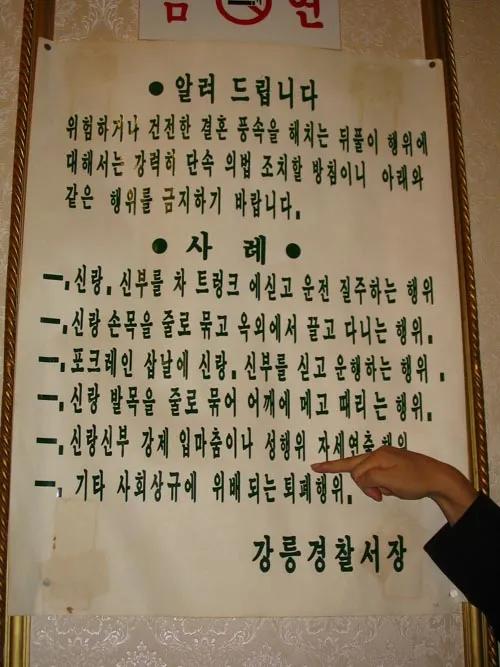 금 연
● 알려 드립니다
위험하거나 건전한 결혼 풍속을 해치는 뒤풀이 행위에
대해서는 강력히 단속 의법 조치할 방침이니 아래와
같은 행위를 금지하기 바랍니다.
● 사 례 ●
一. 신랑. 신부를 차 트렁크 에싣고 운전 질주하는 행위
一. 신랑 손목을 줄로 묶고 옥외에서 끌고 다니는 행위.
一. 포크레인 삽날에 신랑. 신부를 싣고 운행하는 행위 .
一. 신랑 발목을 줄로 묶어 어깨에 메고 때리는 행위.
一. 신랑신부 강제 입마춤이나 성행위 자세연출 행위
一. 기타 사회상규에 위배 되는 퇴폐행위.
강릉경찰서장